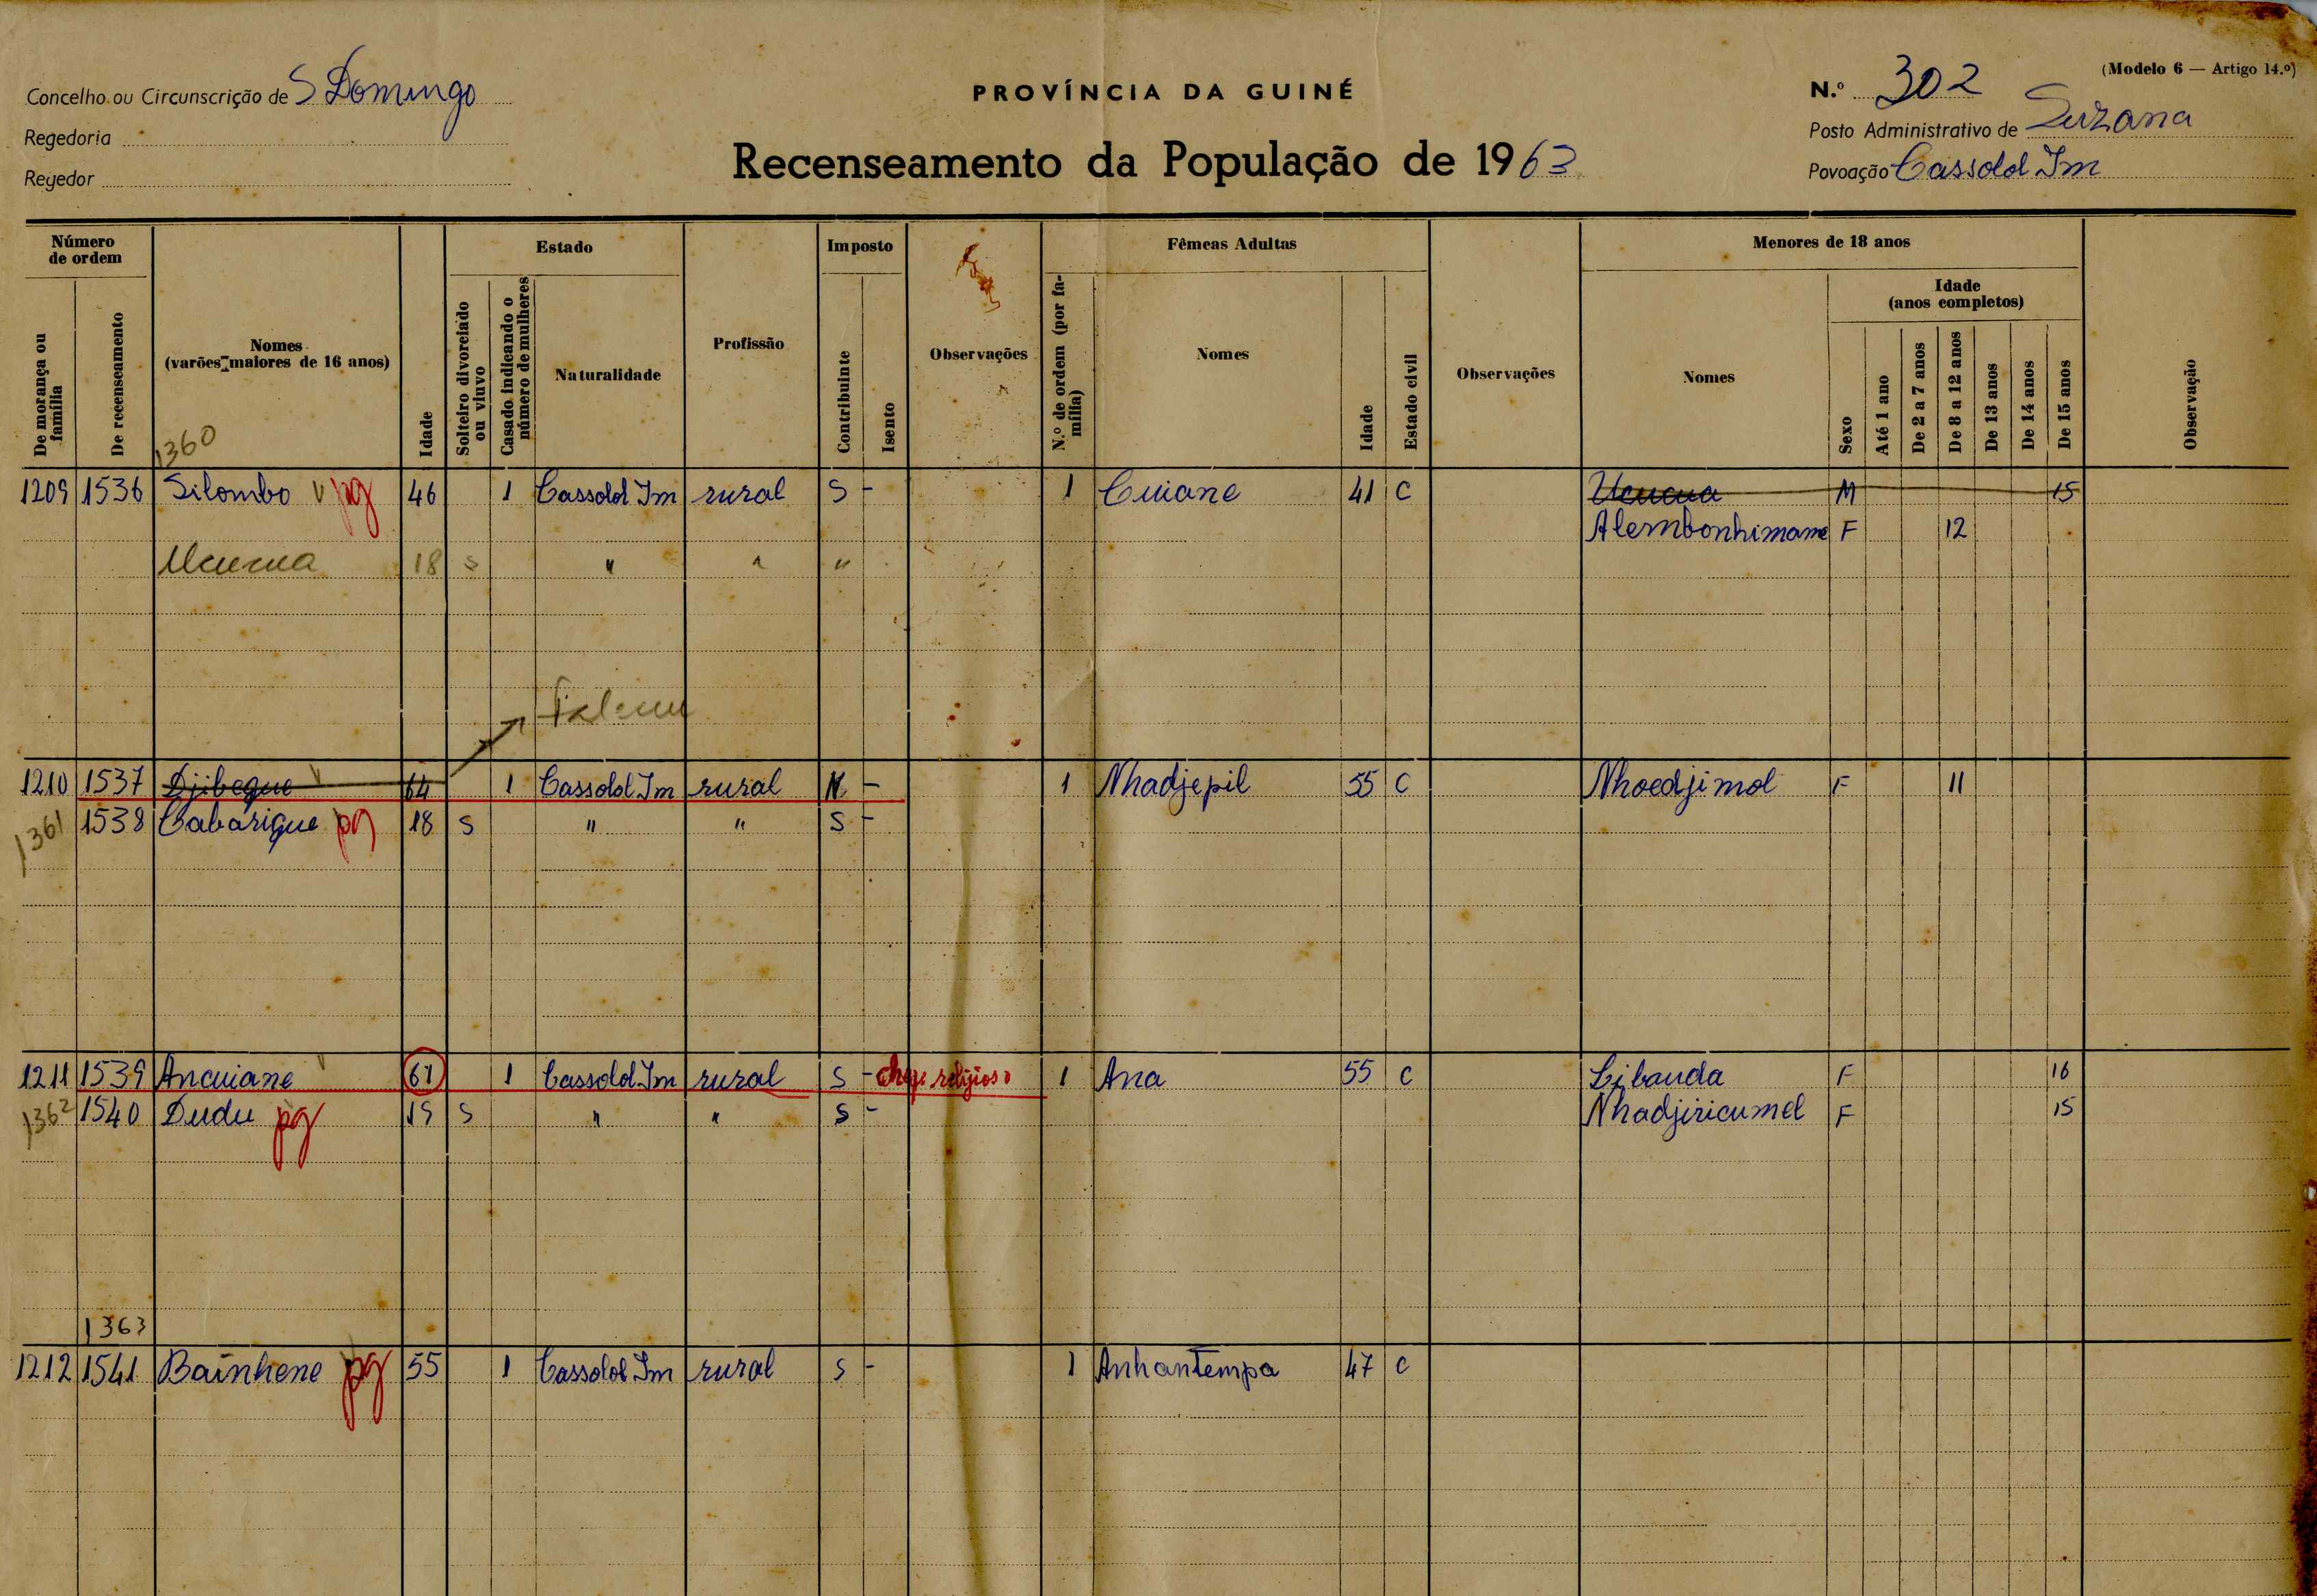 (Modelo 6 — Artigo 14.º)
Concelho ou Circunscrição de S Domingo
PROVÍNCIA DA GUINÉ
N.º 302
Regedoria
Posto Administrativo de Suzana
Regedor
Recenseamento da População de 1963
Povoação Cassolol Im
Número de ordem
Estado
Imposto
Fêmeas Adultas
Menores de 18 anos
De morança ou família
De recenseamento
Nomes (varões maiores de 16 anos)
Idade
Solteiro divorciado ou viuvo
Casado indicando o número de mulheres
Naturalidade
Profissão
Contribuinte
Isento
Observações
N.º de ordem (por família)
Nomes
Idade
Estado civil
Observações
Nomes
Sexo
Idade (anos completos)
Até 1 ano
De 2 a 7 anos
De 8 a 12 anos
De 13 anos
De 14 anos
De 15 anos
Observação
1360
1209 1536 Silombo v pg 46 1 Cassolol Im rural S - 1 Cuiane 41 C Ucucua M 15
Alembonhimame F 12
Ucucua 18 s " " "
1210 1537 Djibegue v 64 1 Cassolol Im rural N - 1 Nhadjepil 55 C Nhoedjimol F 11
1361 1538 Cabarigue pg 18 S " " S -
1211 1539 Ancuiane v 61 1 Cassolol Im rural S - chefe religioso 1 Ana 55 C Libauda F 16
1362 1540 Dudu pg 19 S " " S - Nhadjiricumel F 15
1363
1212 1541 Bainhene pg 55 1 Cassolol Im rural S - 1 Anhantempa 47 C